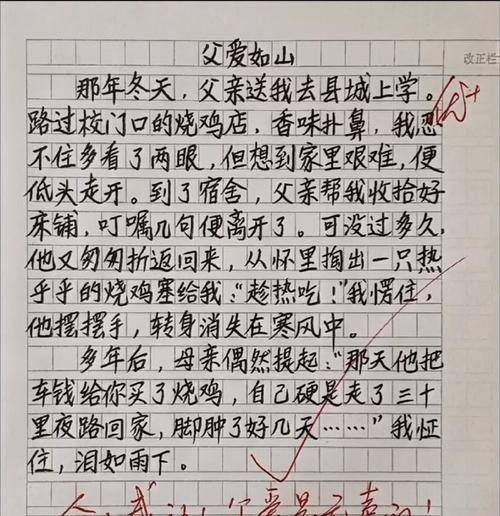 父爱如山
改正栏
那年冬天，父亲送我去县城上学。
路过校门口的烧鸡店，香味扑鼻，我忍
不住多看了两眼，但想到家里艰难，便
低头走开。到了宿舍，父亲帮我收拾好
床铺，叮嘱几句便离开了。可没过多久，
他又匆匆折返回来，从怀里掏出一只热
乎乎的烧鸡塞给我：“趁热吃！”我愣住，
他摆摆手，转身消失在寒风中。
多年后，母亲偶然提起：“那天他把
车钱给你买了烧鸡，自己硬是走了三十
里夜路回家，脚肿了好几天……”我怔
住，泪如雨下。